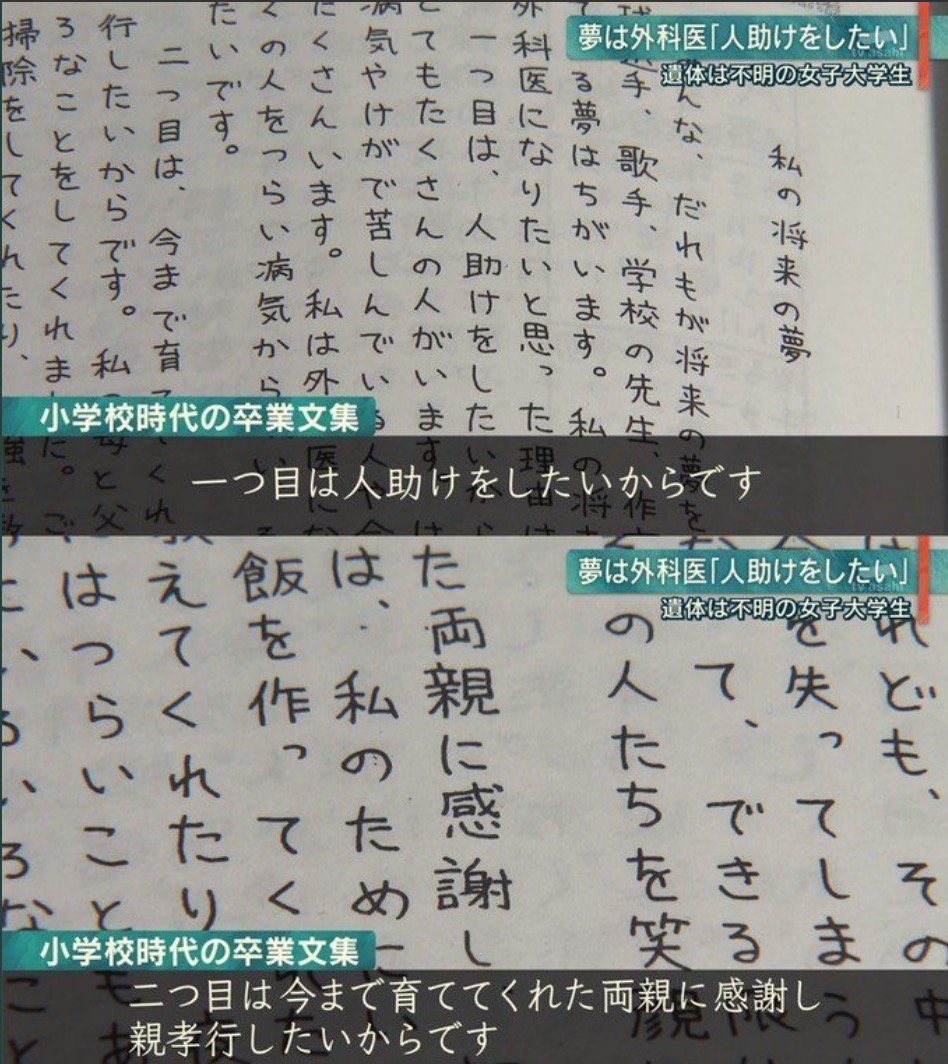 夢は外科医「人助けをしたい」
遺体は不明の女子大学生
私の将来の夢
んな、だれもが将来の夢を
選手、歌手、学校の先生、作
る夢はちがいます。私の将
外科医になりたいと思った理由は
一つ目は、人助けをしたいから
てもたくさんの人がいます。
病気やけがで苦しんでい
たくさんいます。私は外 医にな
くの人をつらい病気から
たいです。
二つ目は、今まで育て くれ
行したいからです。私 母と父
ろなことをしてくれました。ご
掃除をしてくれたり、
小学校時代の卒業文集
一つ目は人助けをしたいからです
夢は外科医「人助けをしたい」
遺体は不明の女子大学生
れども、その中
を失ってしまう
て、できる限
の人たちを笑顔
た両親に感謝し
は、私のために
飯を作ってく
えてくれたり
はつらいことも
ろなこと
小学校時代の卒業文集
二つ目は今まで育ててくれた両親に感謝し
親孝行したいからです